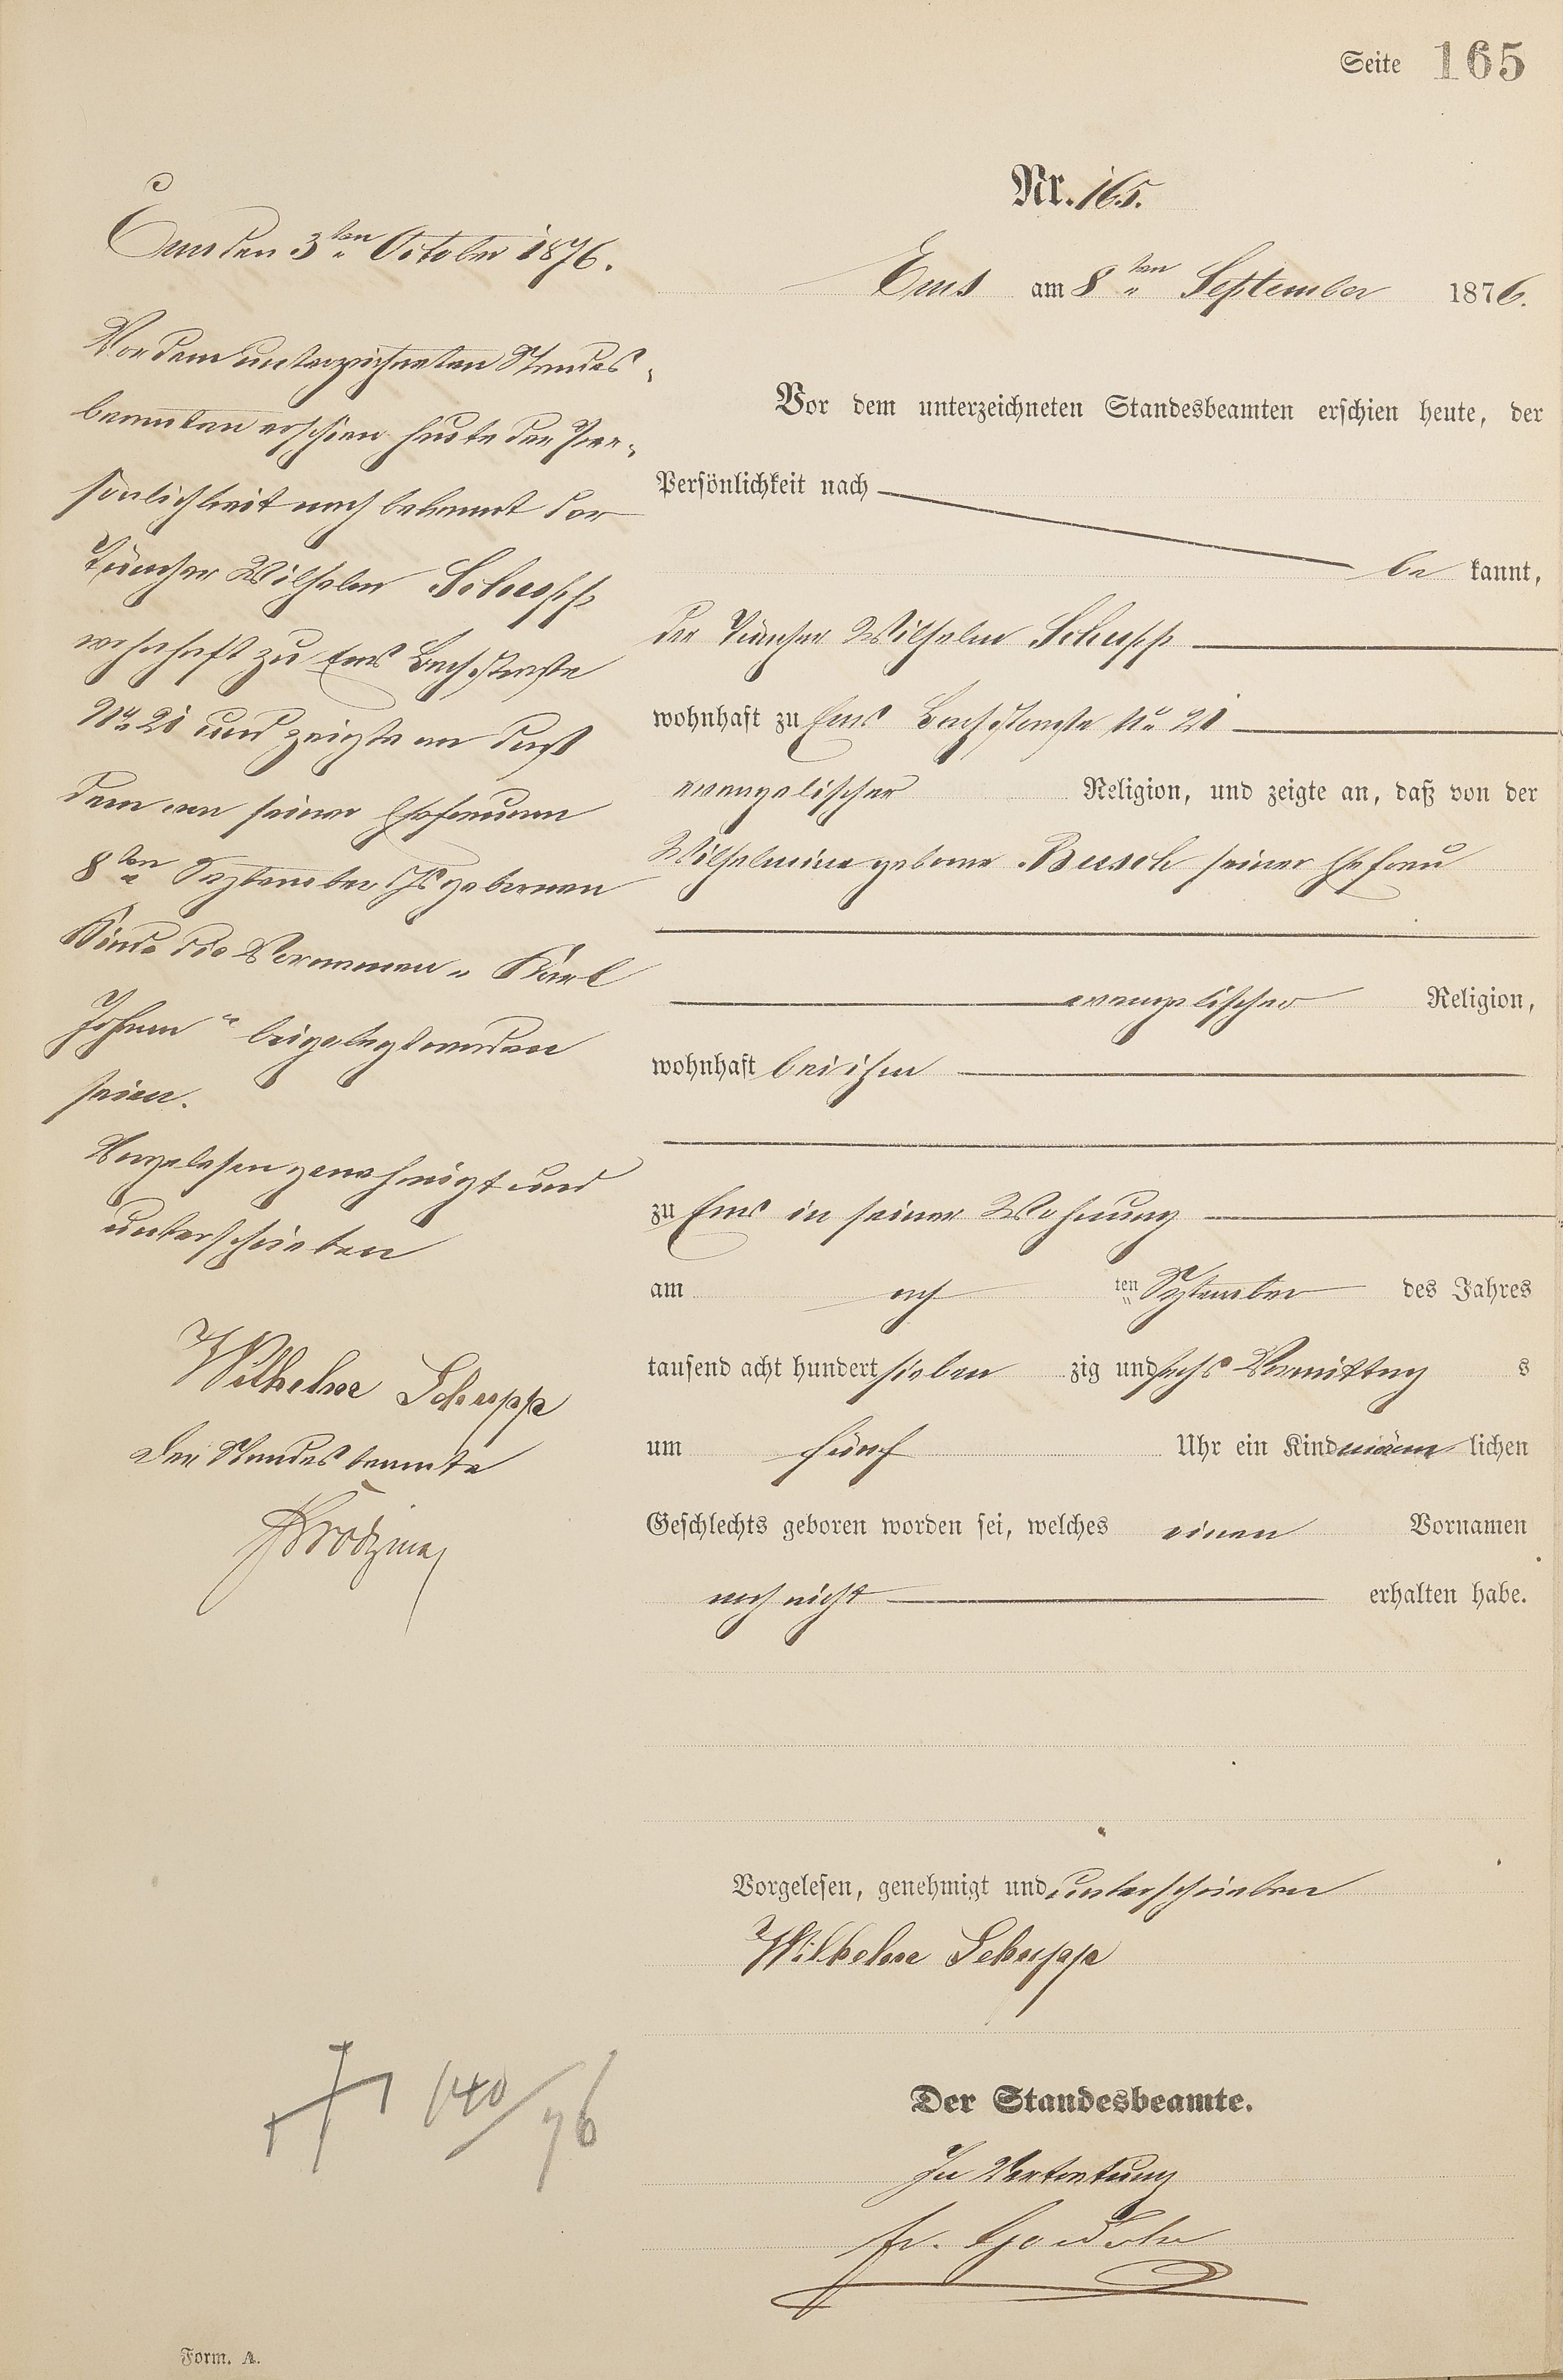 Seite 165
Nr. 165.
Ems am 8ten September 1876.
Vor dem unterzeichneten Standesbeamten erschien heute, der
Persönlichkeit nach
be kannt,
der Tüncher Wilhelm Schupp
wohnhaft zu Ems Bachstraße No 21
evangelischer Religion, und zeigte an, daß von der
Wilhelmine geborne Busch seiner Ehefrau
evangelischer Religion,
wohnhaft bei ihm
zu Ems in seiner Wohnung
am acht ten September des Jahres
tausend acht hundert sieben zig und sechs Vormittag s
um fünf Uhr ein Kind männ lichen
Geschlechts geboren worden sei, welches einen Vornamen
noch nicht erhalten habe.
Vorgelesen, genehmigt und unterschrieben
Wilhelm Schupp
Der Standesbeamte.
In Vertretung
Ems den 3ten October 1876.
Vor dem unterzeichneten Standes-
beamten erschien heute der Per-
sönlichkeit nach bekannt der
Tüncher Wilhelm Schupp
wohnhaft zu Ems Bachstraße
No 21 und zeigte an daß
dem von seiner Ehefrau am
8ten September gebornen
Kinde die Vornamen „Karl
Johann“ beigelegt worden
seien.
Vorgelesen genehmigt und
unterschrieben
Wilhelm Schupp
Der Standesbeamte
140/76
Form. A.